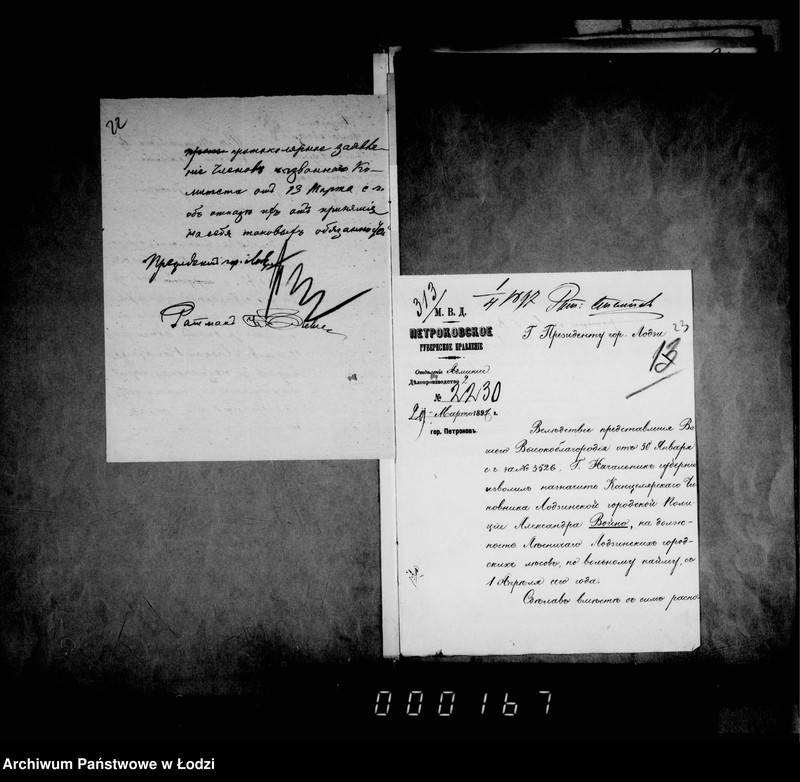 22
протоколярное заявле-
ние Членовъ названнаго Ко-
митета отъ 13 Марта с. г.
объ отказѣ ихъ отъ принятія
на себя таковыхъ обязанностей
Президентъ гор. Лодзи
Ратманъ
313
1/4 1897
23
М. В. Д.
ПЕТРОКОВСКОЕ
ГУБЕРНСКОЕ ПРАВЛЕНІЕ
Г. Президенту гор. Лодзи
13
Отдѣленіе Админис
Дѣлопроизводство 2
№ 2230
29 Марта 1897 г.
гор. Петроковъ.
Вслѣдствіе представленія Ва-
шего Высокоблагородія отъ 30 Января
с. г. за № 3526, Г. Начальникъ губерніи
изволилъ назначить Канцелярскаго Чи-
новника Лодзинской городской Поли-
ціи Александра Война, на долж-
ность Лѣсничаго Лодзинскихъ город-
скихъ лѣсовъ, по вольному найму, съ
1 Апрѣля сего года.
Сдѣлавъ вмѣстѣ съ симъ распо-
000167
Archiwum Państwowe w Łodzi